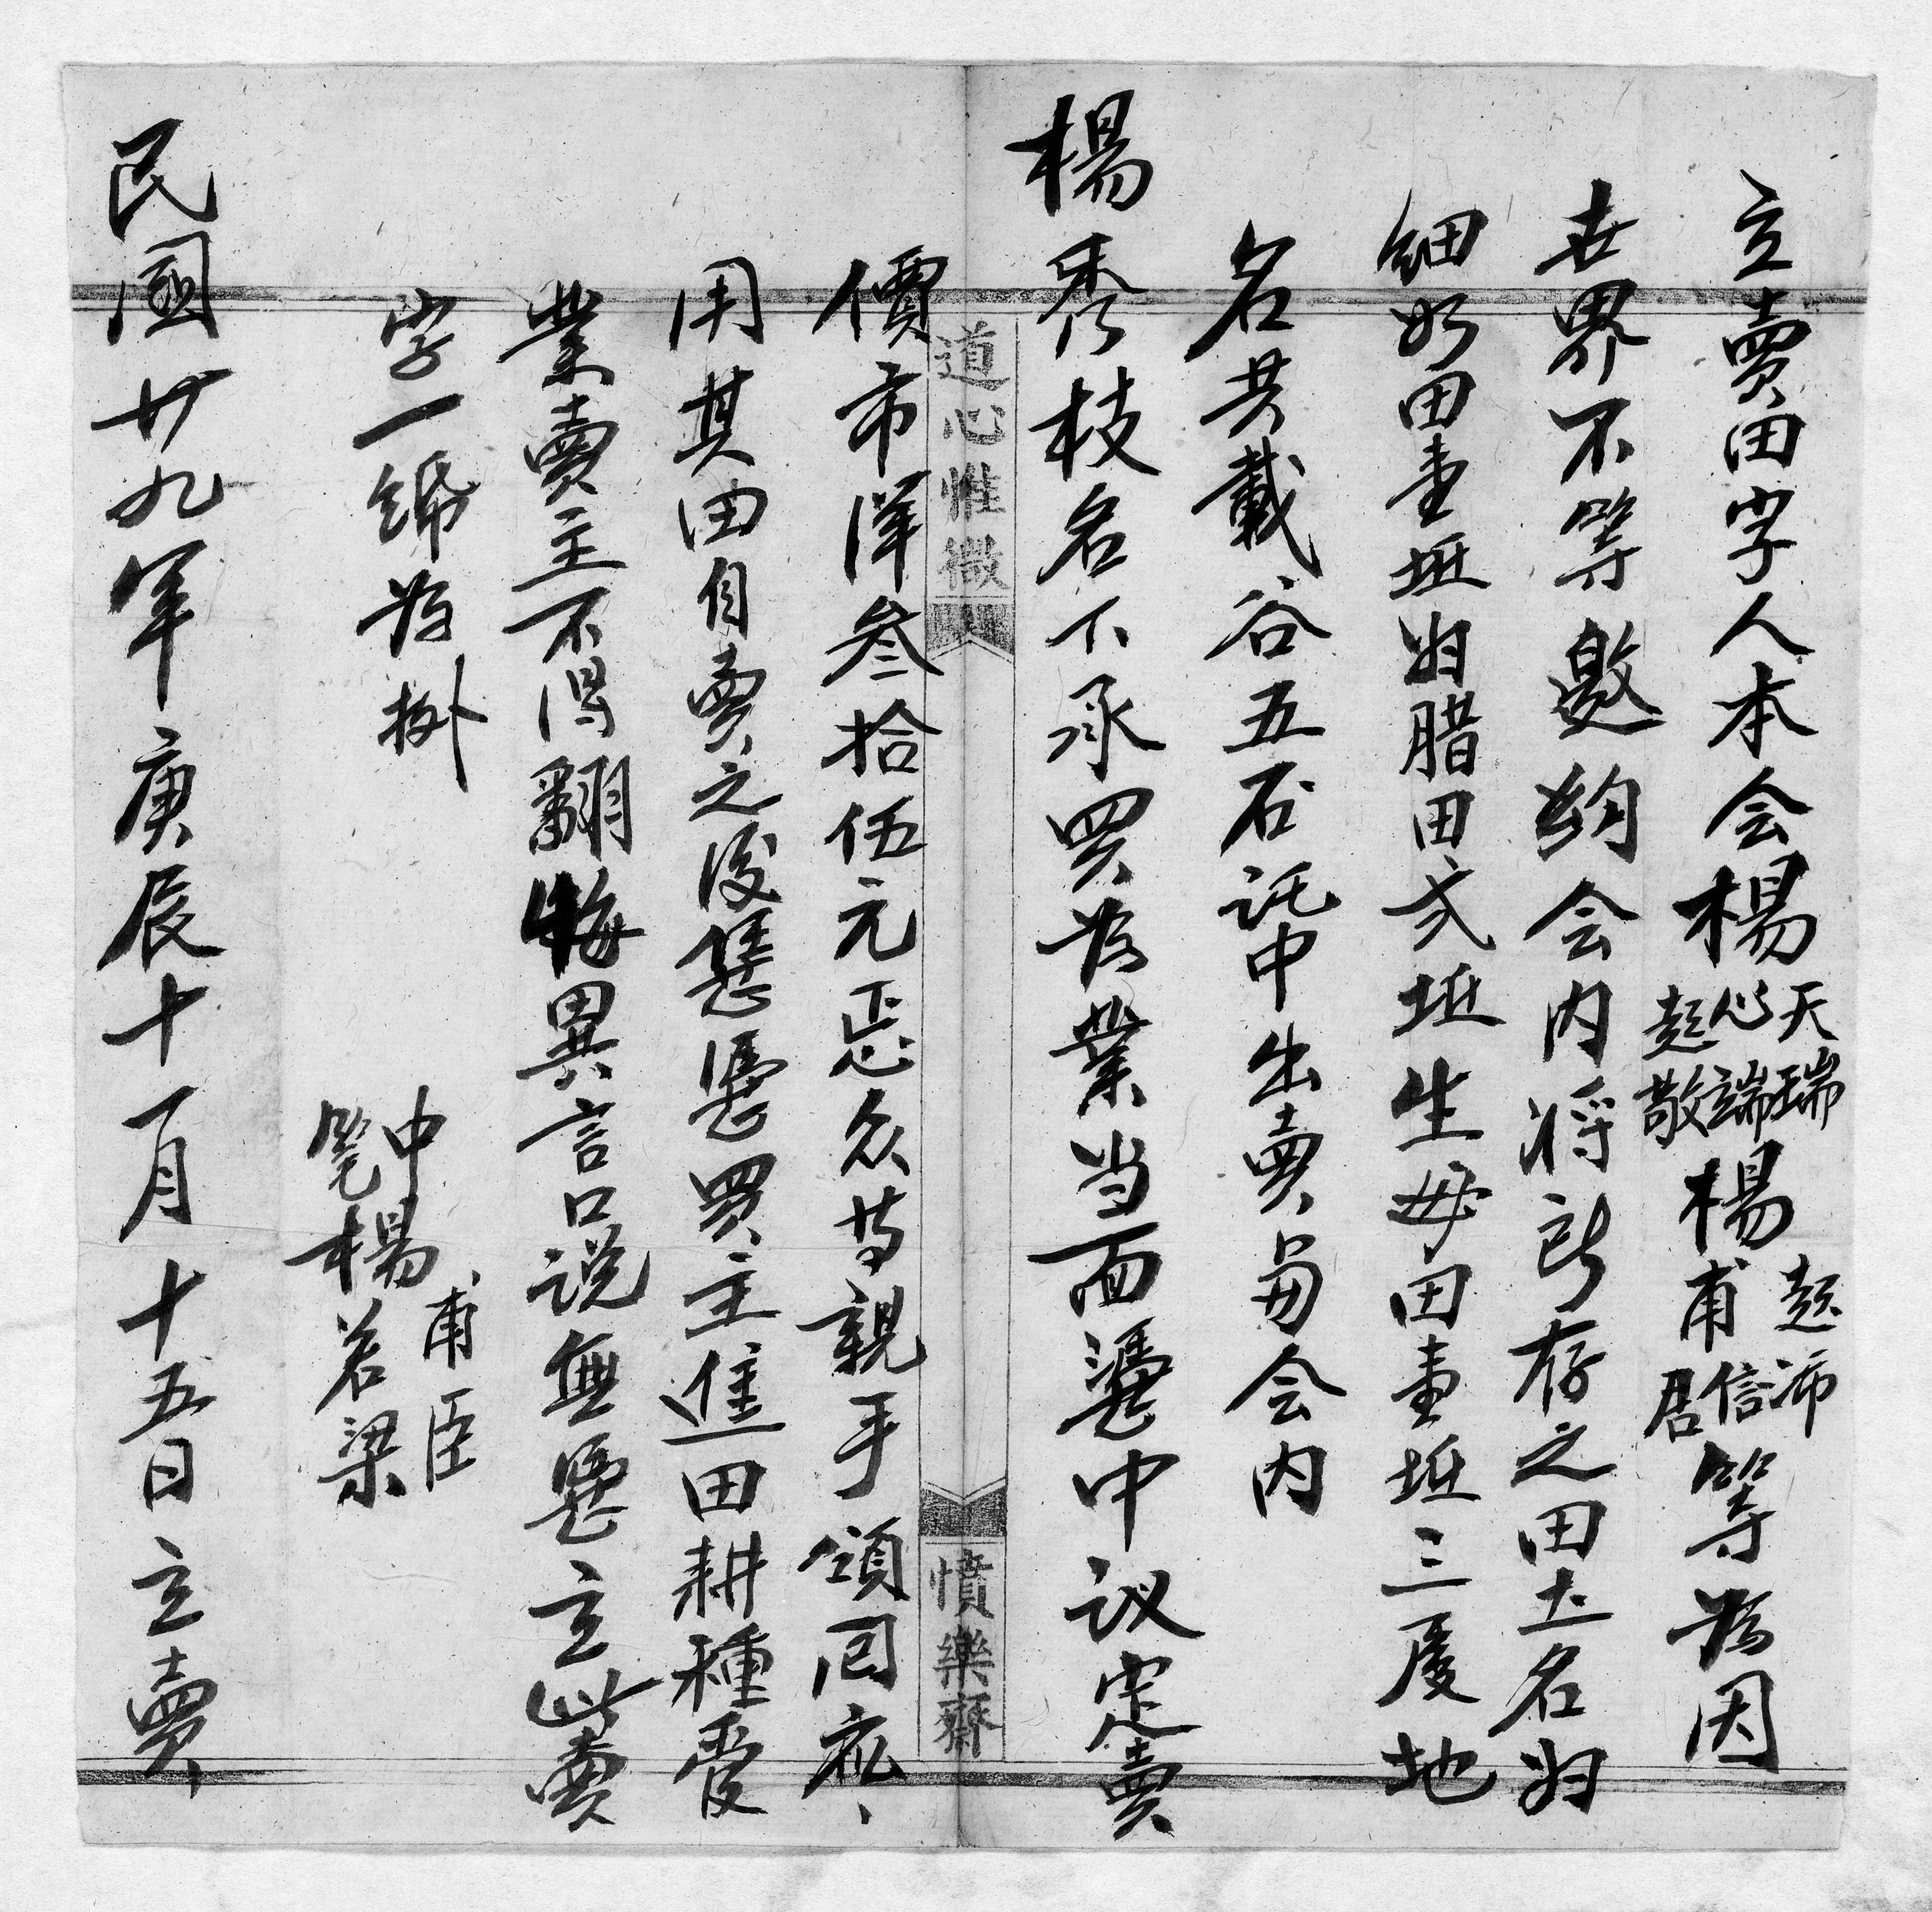 立賣田字人本会楊天瑞心端趍敬楊趍沛甫信君等為因
世界不等邀約会内将所存之田土名㘴
細沙田壹坵㘴腊田弍坵生毋田壹坵三处地
名共載谷五石託中出賣與会内
楊秀枝名下承買為業当面憑中议定賣
價市洋叁拾伍元正众等親手領回
用其田自賣之後憑買主進田耕種受
業賣主不得翻悔異言口说無憑立此賣
字一纸為據
中甫臣
筆楊若梁
民國廿九年庚辰十一月十五日立賣
道心惟微
憤樂齋